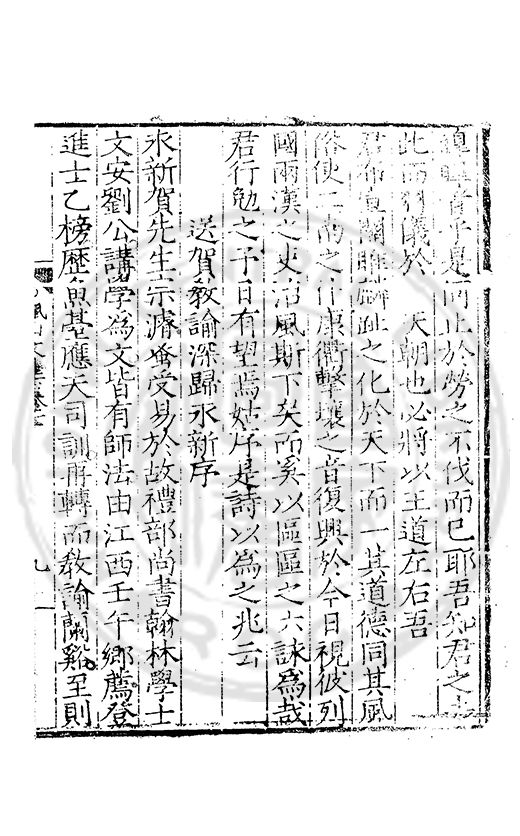 於是而止於勞之不伐而已耶吾知君之
此而羽儀於 天朝也必將以王道左右吾
君布宣關雎麟趾之化於天下而一其道德同其風
俗使二南之什康衢擊壤之音復興於今日視彼列
國兩漢之吏治風斯下矣而奚以區區之六詠為哉
君行勉之予日有望焉姑序是詩以為之兆云
送賀教諭深歸永新序
永新賀先生宗濬蚤受易於故禮部尚書翰林學士
文安劉公講學為文皆有師法由江西壬午鄉薦登
進士乙榜歷魚臺應天司訓再轉而教諭蘭谿至則
楓山文集卷
九